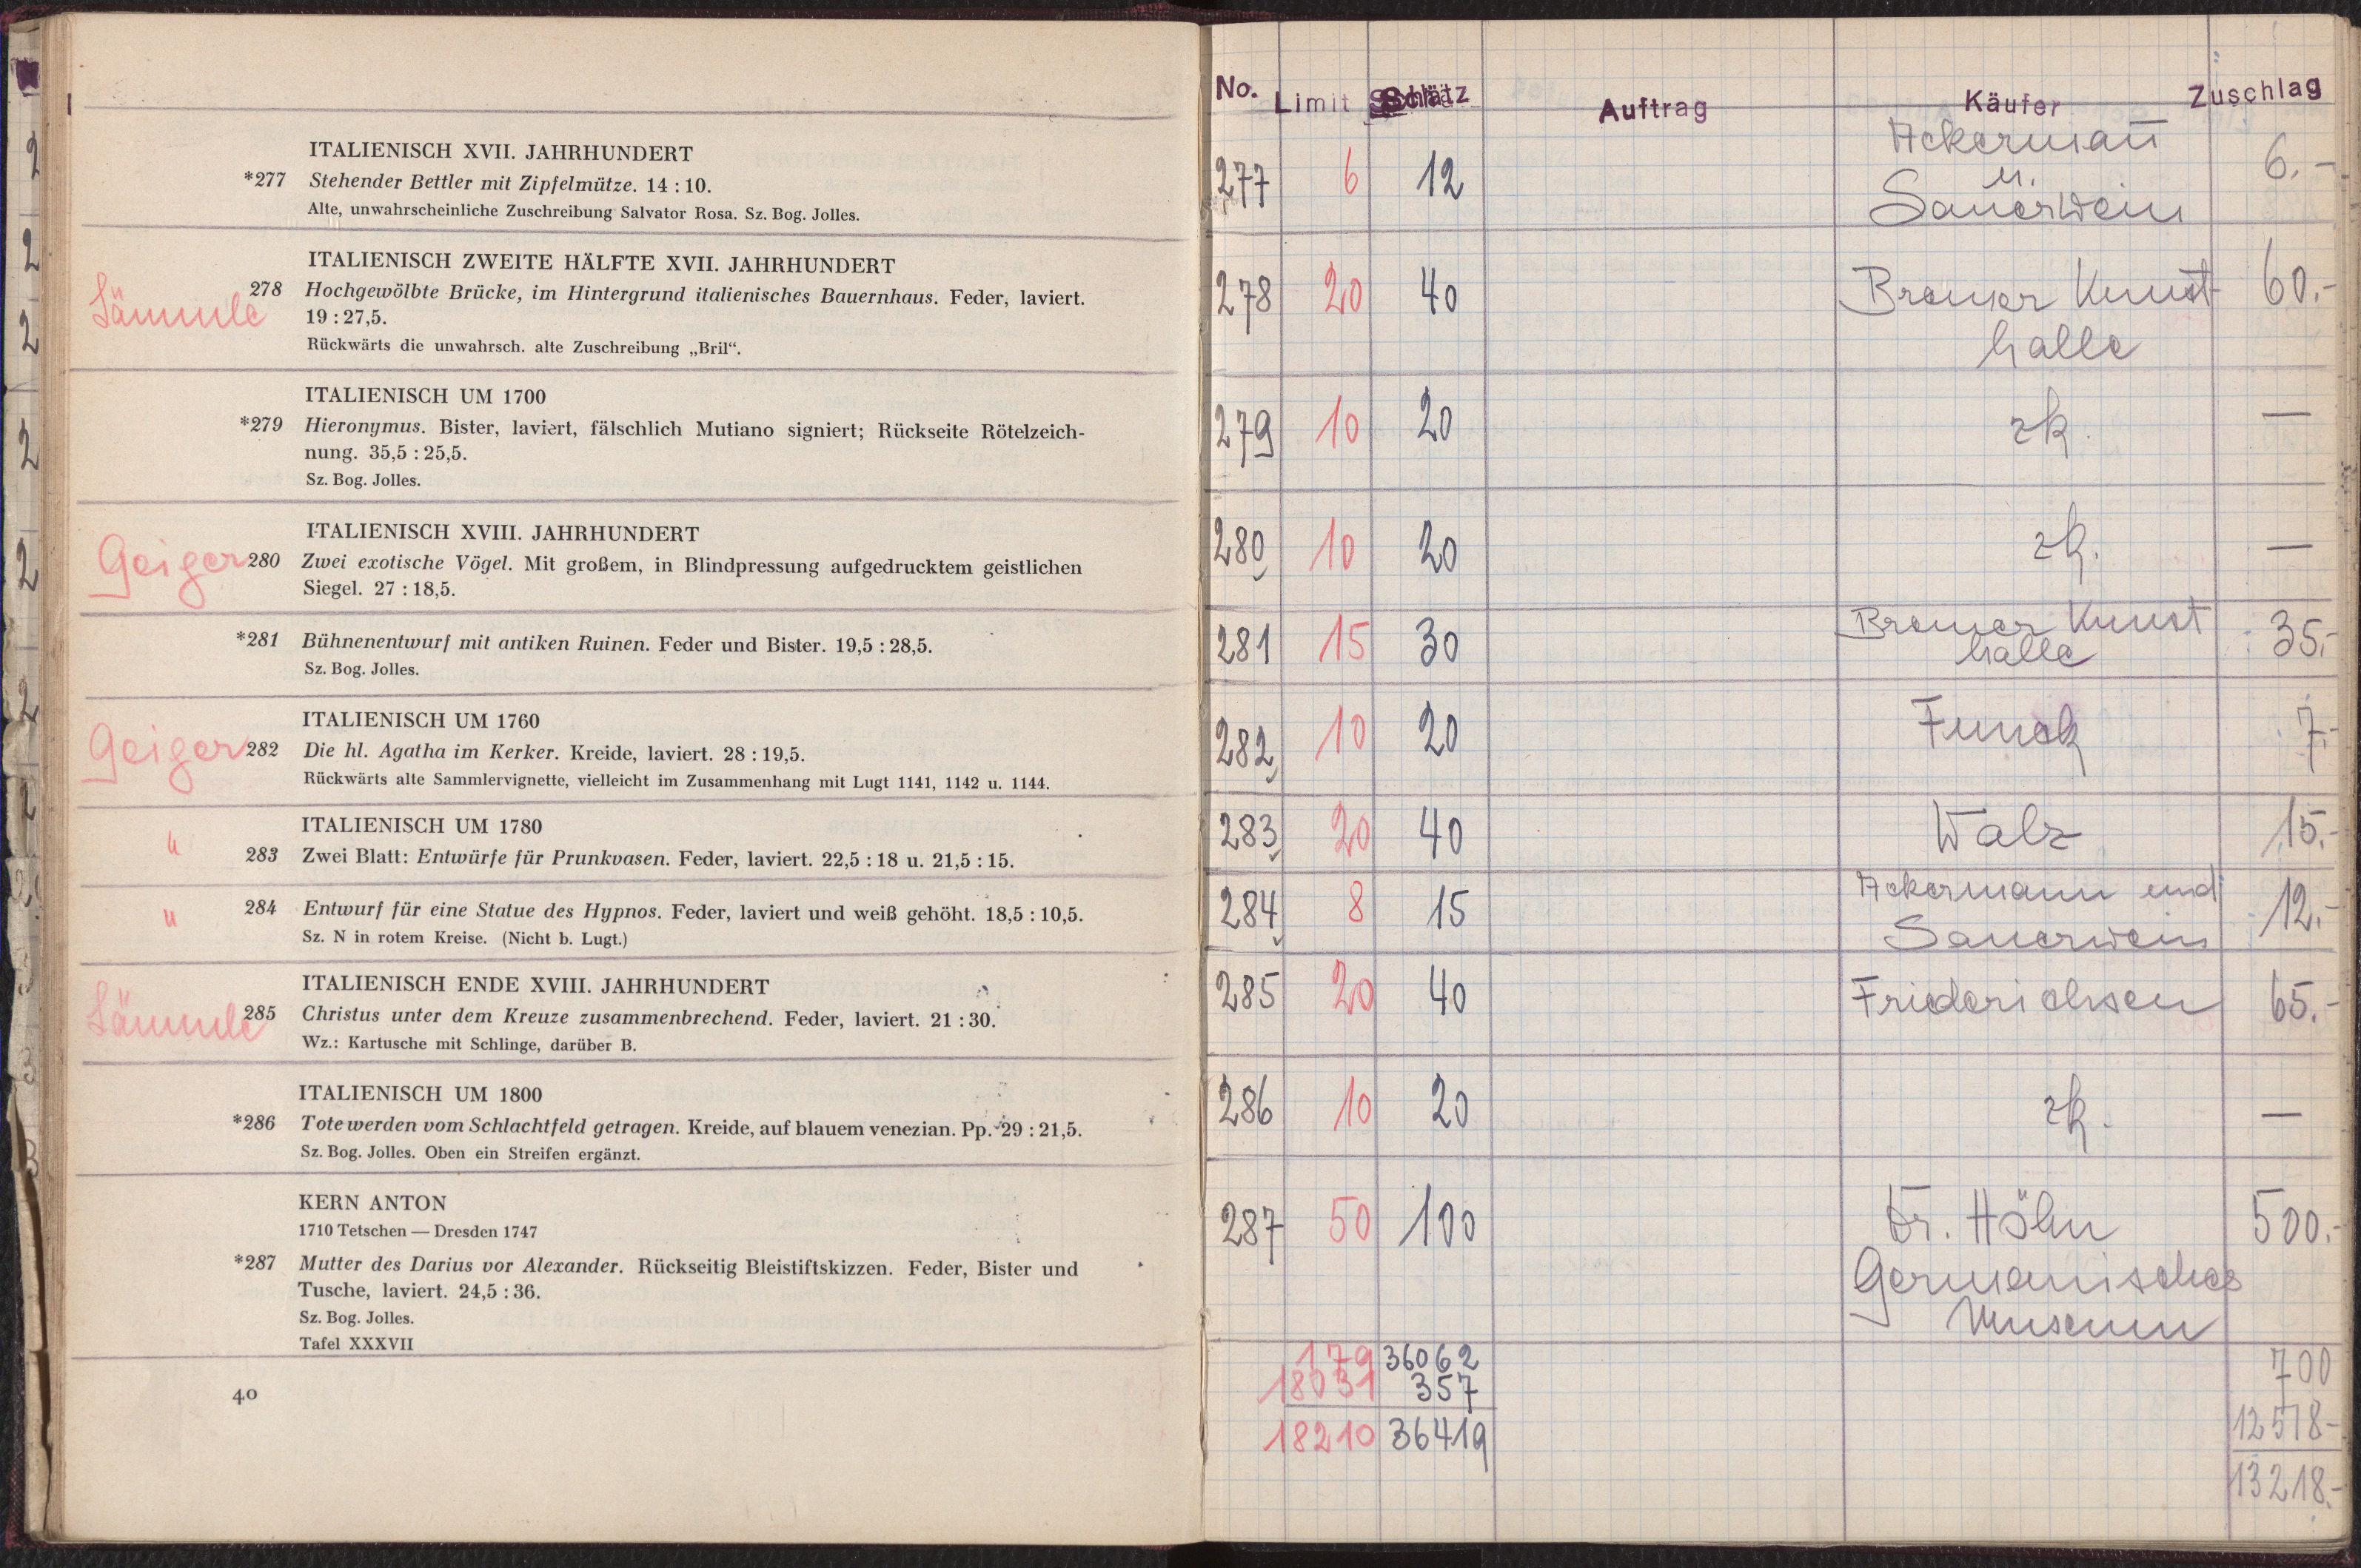 ITALIENISCH XVII. JAHRHUNDERT
*277 Stehender Bettler mit Zipfelmütze. 14 : 10.
Alte, unwahrscheinliche Zuschreibung Salvator Rosa. Sz. Bog. Jolles.
ITALIENISCH ZWEITE HÄLFTE XVII. JAHRHUNDERT
Lämmle 278 Hochgewölbte Brücke, im Hintergrund italienisches Bauernhaus. Feder, laviert.
19 : 27,5.
Rückwärts die unwahrsch. alte Zuschreibung „Bril“.
ITALIENISCH UM 1700
*279 Hieronymus. Bister, laviert, fälschlich Mutiano signiert; Rückseite Rötelzeich-
nung. 35,5 : 25,5.
Sz. Bog. Jolles.
ITALIENISCH XVIII. JAHRHUNDERT
Geiger 280 Zwei exotische Vögel. Mit großem, in Blindpressung aufgedrucktem geistlichen
Siegel. 27 : 18,5.
*281 Bühnenentwurf mit antiken Ruinen. Feder und Bister. 19,5 : 28,5.
Sz. Bog. Jolles.
ITALIENISCH UM 1760
Geiger 282 Die hl. Agatha im Kerker. Kreide, laviert. 28 : 19,5.
Rückwärts alte Sammlervignette, vielleicht im Zusammenhang mit Lugt 1141, 1142 u. 1144.
ITALIENISCH UM 1780
" 283 Zwei Blatt: Entwürfe für Prunkvasen. Feder, laviert. 22,5 : 18 u. 21,5 : 15.
" 284 Entwurf für eine Statue des Hypnos. Feder, laviert und weiß gehöht. 18,5 : 10,5.
Sz. N in rotem Kreise. (Nicht b. Lugt.)
ITALIENISCH ENDE XVIII. JAHRHUNDERT
Lämmle 285 Christus unter dem Kreuze zusammenbrechend. Feder, laviert. 21 : 30.
Wz.: Kartusche mit Schlinge, darüber B.
ITALIENISCH UM 1800
*286 Tote werden vom Schlachtfeld getragen. Kreide, auf blauem venezian. Pp. 29 : 21,5.
Sz. Bog. Jolles. Oben ein Streifen ergänzt.
KERN ANTON
1710 Tetschen — Dresden 1747
*287 Mutter des Darius vor Alexander. Rückseitig Bleistiftskizzen. Feder, Bister und
Tusche, laviert. 24,5 : 36.
Sz. Bog. Jolles.
Tafel XXXVII
40
No. Limit Schätz Auftrag Käufer Zuschlag
277 6 12 Ackermañ 6.-
u.
Sauerwein
278 20 40 Bremer Kunst 60.-
halle
279 10 20 zk. —
280 10 20 zk. —
281 15 30 Bremer Kunst 35.-
halle
282 10 20 Funck 7.-
283 20 40 Walz 15.-
284 8 15 Ackermann und 12.-
Sauerwein
285 20 40 Friederichsen 65.-
286 10 20 zk. —
287 50 100 Dr. Höhn 500.-
Germanisches
Museum
179 36062 700
18031 357 12518-
18210 36419 13218.-